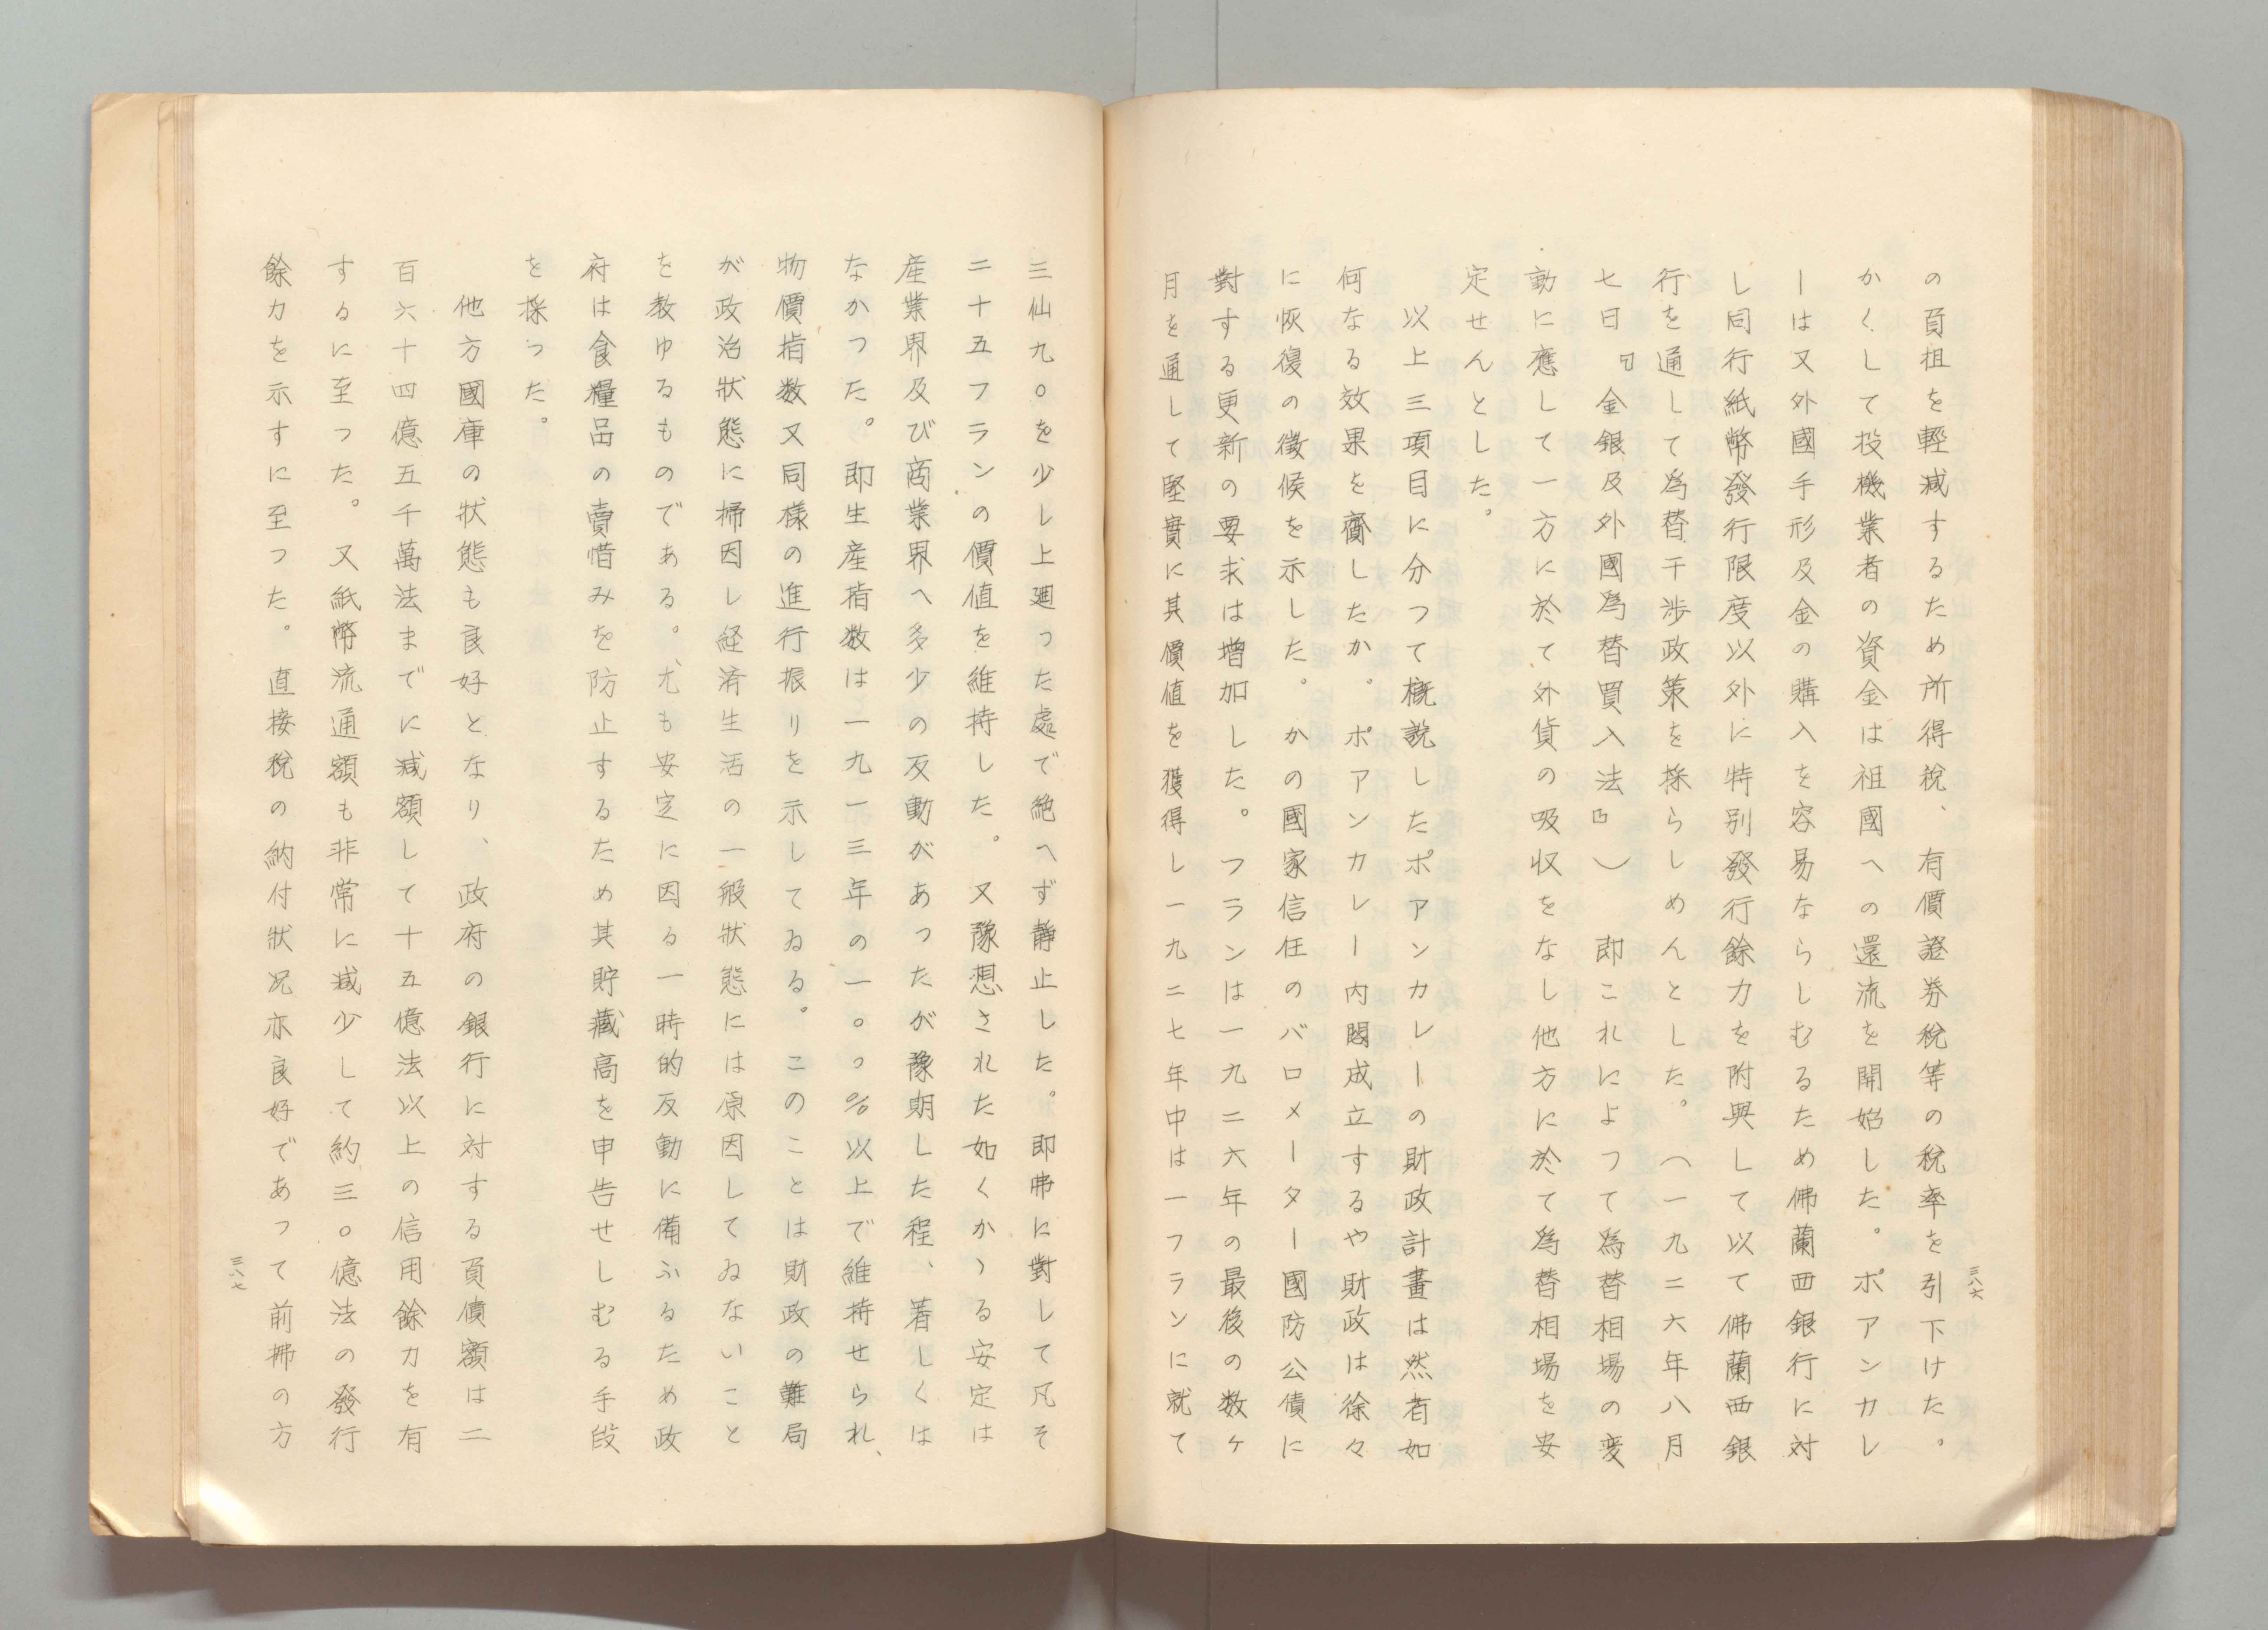 三八六
の負担を輕減するため所得稅、有價證券稅等の稅率を引下けた。
かくして投機業者の資金は祖國への還流を開始した。ポアンカレ
ーは又外國手形及金の購入を容易ならしむるため佛蘭西銀行に対
し同行紙幣發行限度以外に特別發行餘力を附與して以て佛蘭西銀
行を通して為替干渉政策を採らしめんとした。（一九二六年八月
七日『金銀及外國為替買入法』）即これによつて為替相場の変
動に應して一方に於て外貨の吸収をなし他方に於て為替相場を安
定せんとした。
以上三項目に分つて概說したポアンカレーの財政計畫は然者如
何なる效果を齎したか。ポアンカレー内閣成立するや財政は徐々
に恢復の徴候を示した。かの國家信任のバロメーター國防公債に
對する更新の要求は増加した。フランは一九二六年の最後の数ヶ
月を通して堅實に其價値を獲得し一九二七年中は一フランに就て
三仙九〇を少し上廻つた處で絶へず静止した。即弗に對して凡そ
二十五フランの價値を維持した。又豫想された如くかゝる安定は
産業界及び商業界へ多少の反動があつたが豫期した程、著しくは
なかつた。即生産指数は一九一三年の一〇〇％以上で維持せられ、
物價指数又同様の進行振りを示してゐる。このことは財政の難局
が政治狀態に掃因し経済生活の一般狀態には原因してゐないこと
を教ゆるものである。尤も安定に因る一時的反動に備ふるため政
府は食糧品の賣惜みを防止するため其貯藏高を申告せしむる手段
を採つた。
他方國庫の狀態も良好となり、政府の銀行に対する負債額は二
百六十四億五千萬法までに減額して十五億法以上の信用餘力を有
するに至つた。又紙幣流通額も非常に減少して約三〇億法の發行
餘力を示すに至つた。直接稅の納付狀況亦良好であつて前拂の方
三八七